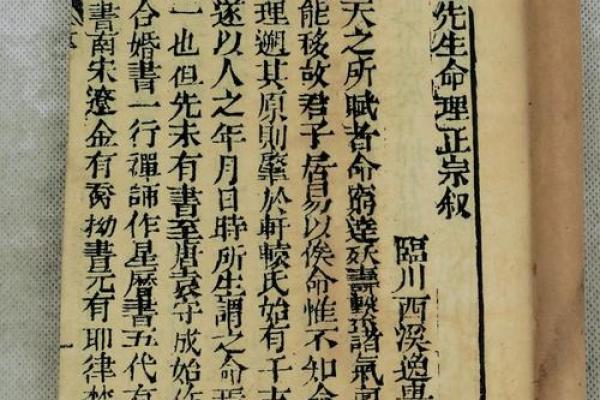 先生命理正宗叙
臨川西溪逸
天之所賦者命窮達殀壽繫諸氣
能移故君子居易以俟命惟不知命
理遡其原則肇於軒轅氏始有干支
遂以人之年月日時所生謂之命焉
一也但先未有書至唐袁守成始作
合婚書一行禪誦作星曆書五代有
書南宋遼金有喬拗書元有耶律楚